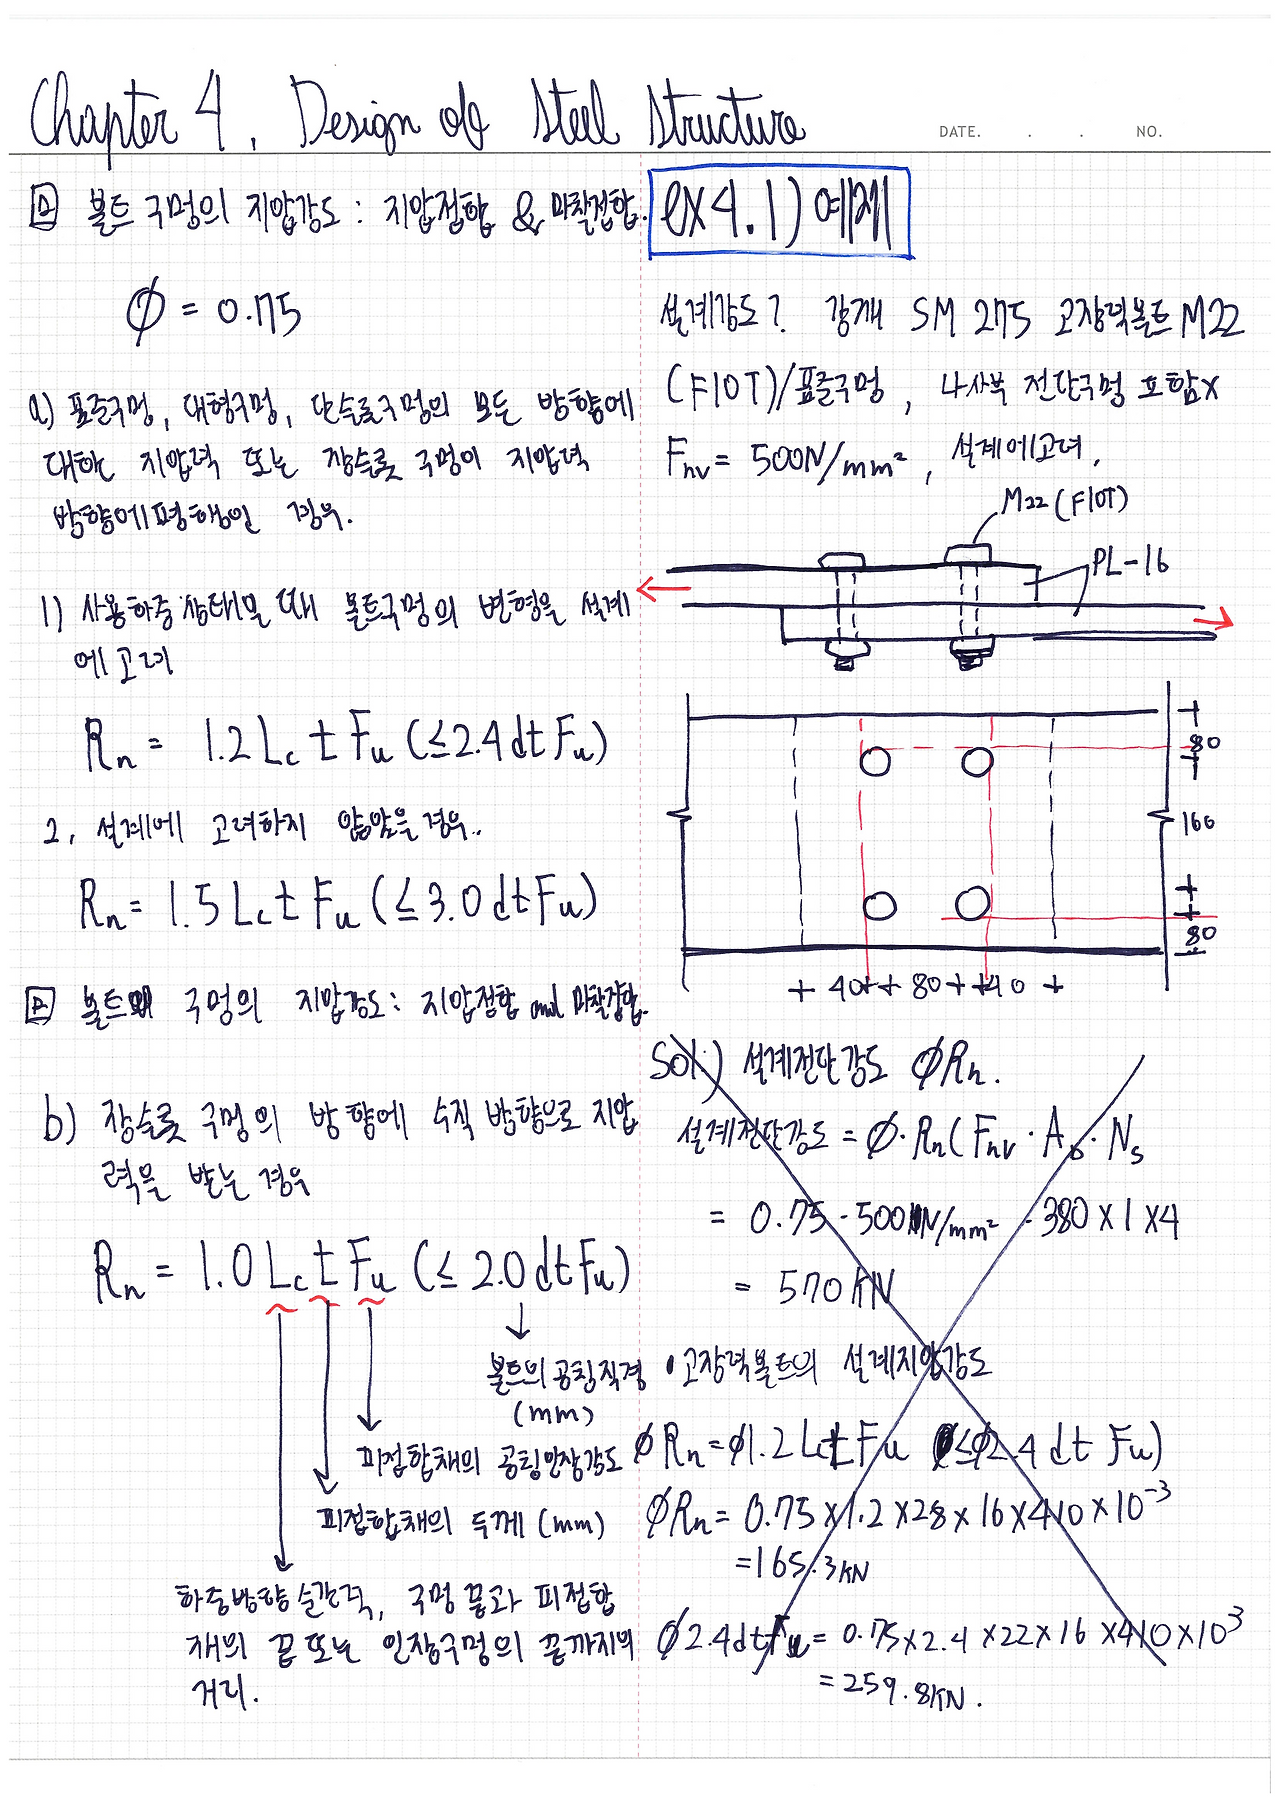 Chapter 4. Design of Steel Structure
DATE. . . NO.
볼트 구멍의 지압강도 : 지압접합 & 마찰접합.
∅ = 0.75
a) 표준구멍, 대형구멍, 단슬롯구멍의 모든 방향에
대한 지압력 또는 장슬롯 구멍이 지압력
방향에 평행인 경우.
1) 사용하중 상태일 때 볼트구멍의 변형을 설계
에 고려
Rn = 1.2 Lc t Fu (≤2.4 dt Fu)
2, 설계에 고려하지 않았을 경우..
Rn = 1.5 Lc t Fu (≤3.0 dt Fu)
구멍의 지압강도 : 지압접합 and 마찰접합.
b) 장슬롯 구멍의 방향에 수직 방향으로 지압
력을 받는 경우
Rn = 1.0 Lc t Fu (≤ 2.0 dt Fu)
볼트의 공칭직경
(mm)
피접합재의 공칭인장강도
피접합재의 두께 (mm)
하중방향 순간격, 구멍 끝과 피접합
재의 끝 또는 인장구멍의 끝까지의
거리.
ex 4.1) 예제
설계강도? 강재 SM 275 고장력볼트 M22
(F10T)/표준구멍, 나사부 전단구멍 포함x
Fnv = 500N/mm², 설계에 고려.
M22 (F10T)
PL-16
80
160
80
40 80 40
Sol) 설계전단강도 ∅Rn.
설계전단강도 = ∅·Rn(Fnv·Ab·Ns
= 0.75 · 500N/mm² · 380 × 1 × 4
= 570 KN
• 고장력볼트의 설계지압강도
∅Rn = ∅1.2 Lct Fu (≤∅2.4 dt Fu)
∅Rn = 0.75 × 1.2 × 28 × 16 × 410 × 10⁻³
= 165.3 KN
∅2.4dtFu = 0.75 × 2.4 × 22 × 16 × 410 × 10³
= 259.8 KN.